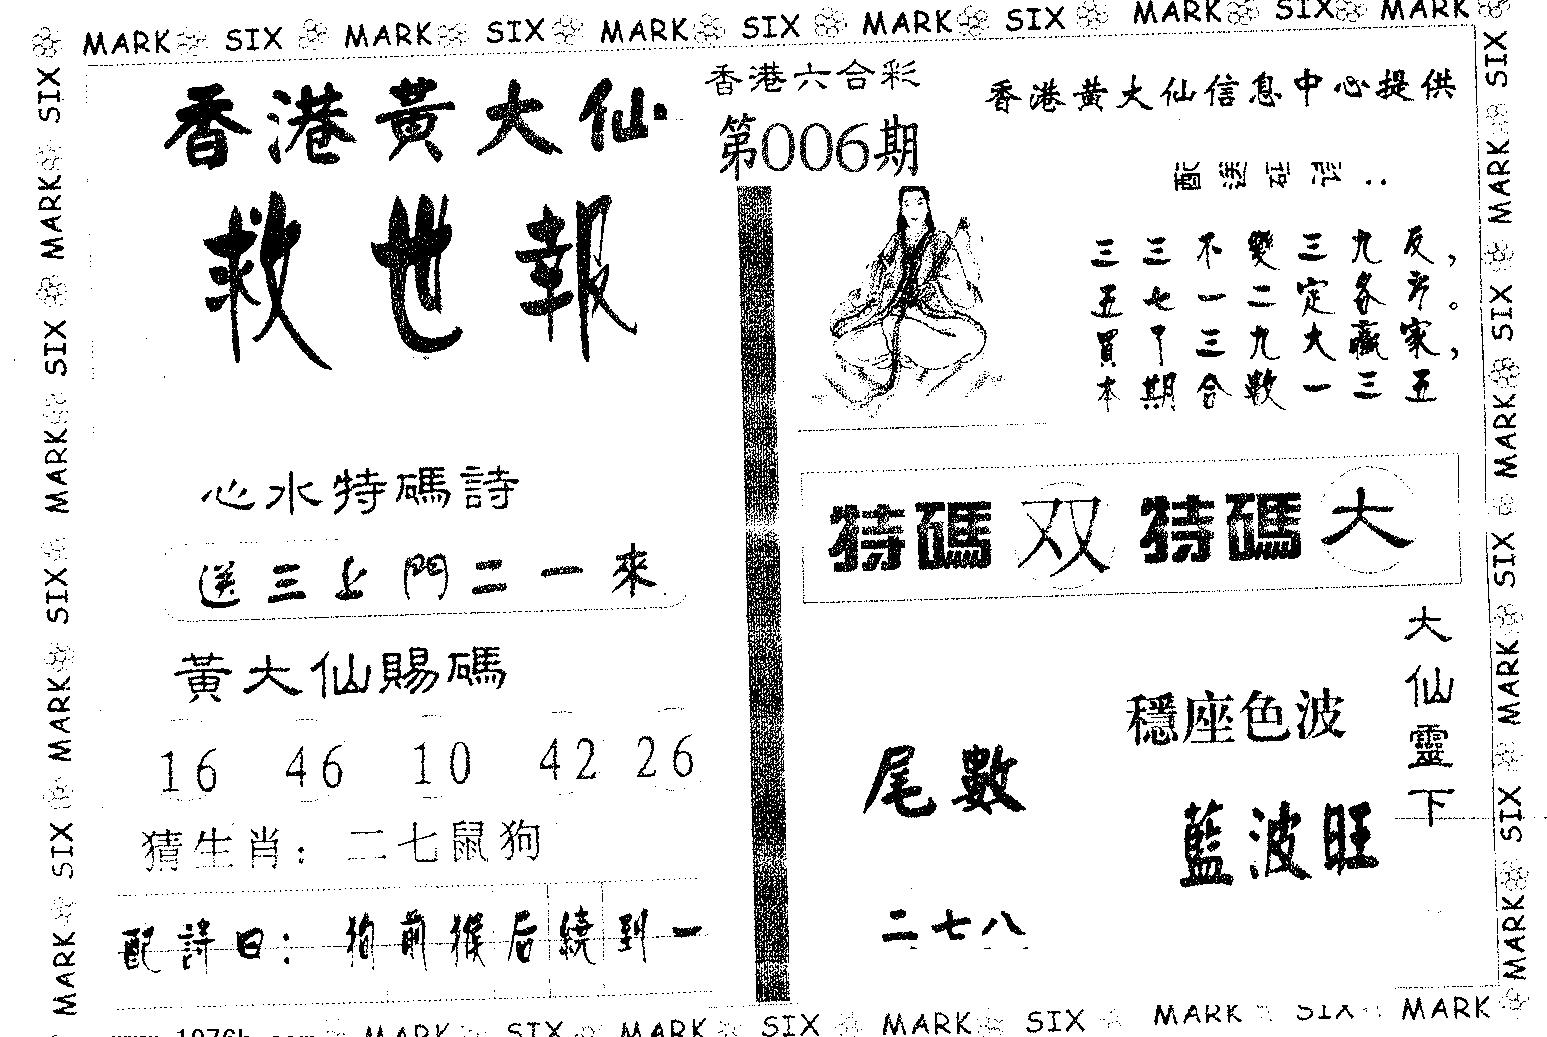 MARK SIX MARK SIX MARK SIX MARK SIX MARK SIX MARK
香港黃大仙
救世報
香港六合彩
第006期
香港黃大仙信息中心提供
配送
三三不變三九反，
五七一二定各
買 三九大贏家，
本期合數一三五
心水特碼詩
送三上門二一來
黃大仙賜碼
16 46 10 42 26
猜生肖：二七鼠狗
配詩曰：狗前猴后繞到一
特碼双 特碼大
尾數
二七八
穩座色波
藍波旺
大仙靈下
MARK SIX MARK SIX MARK SIX MARK SIX
SIX MARK SIX MARK SIX MARK SIX MARK
MARK SIX MARK SIX MARK SIX MARK SIX MARK